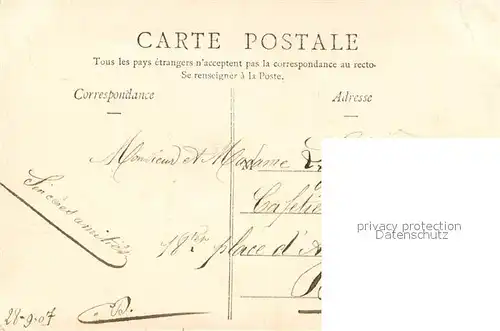 CARTE POSTALE
Tous les pays étrangers n'acceptent pas la correspondance au recto-
Se renseigner à la Poste.
Correspondance
Adresse
Monsieur et Madame
Sincères amitiés
18 bis place d'A
privacy protection
Datenschutz
28-9-07